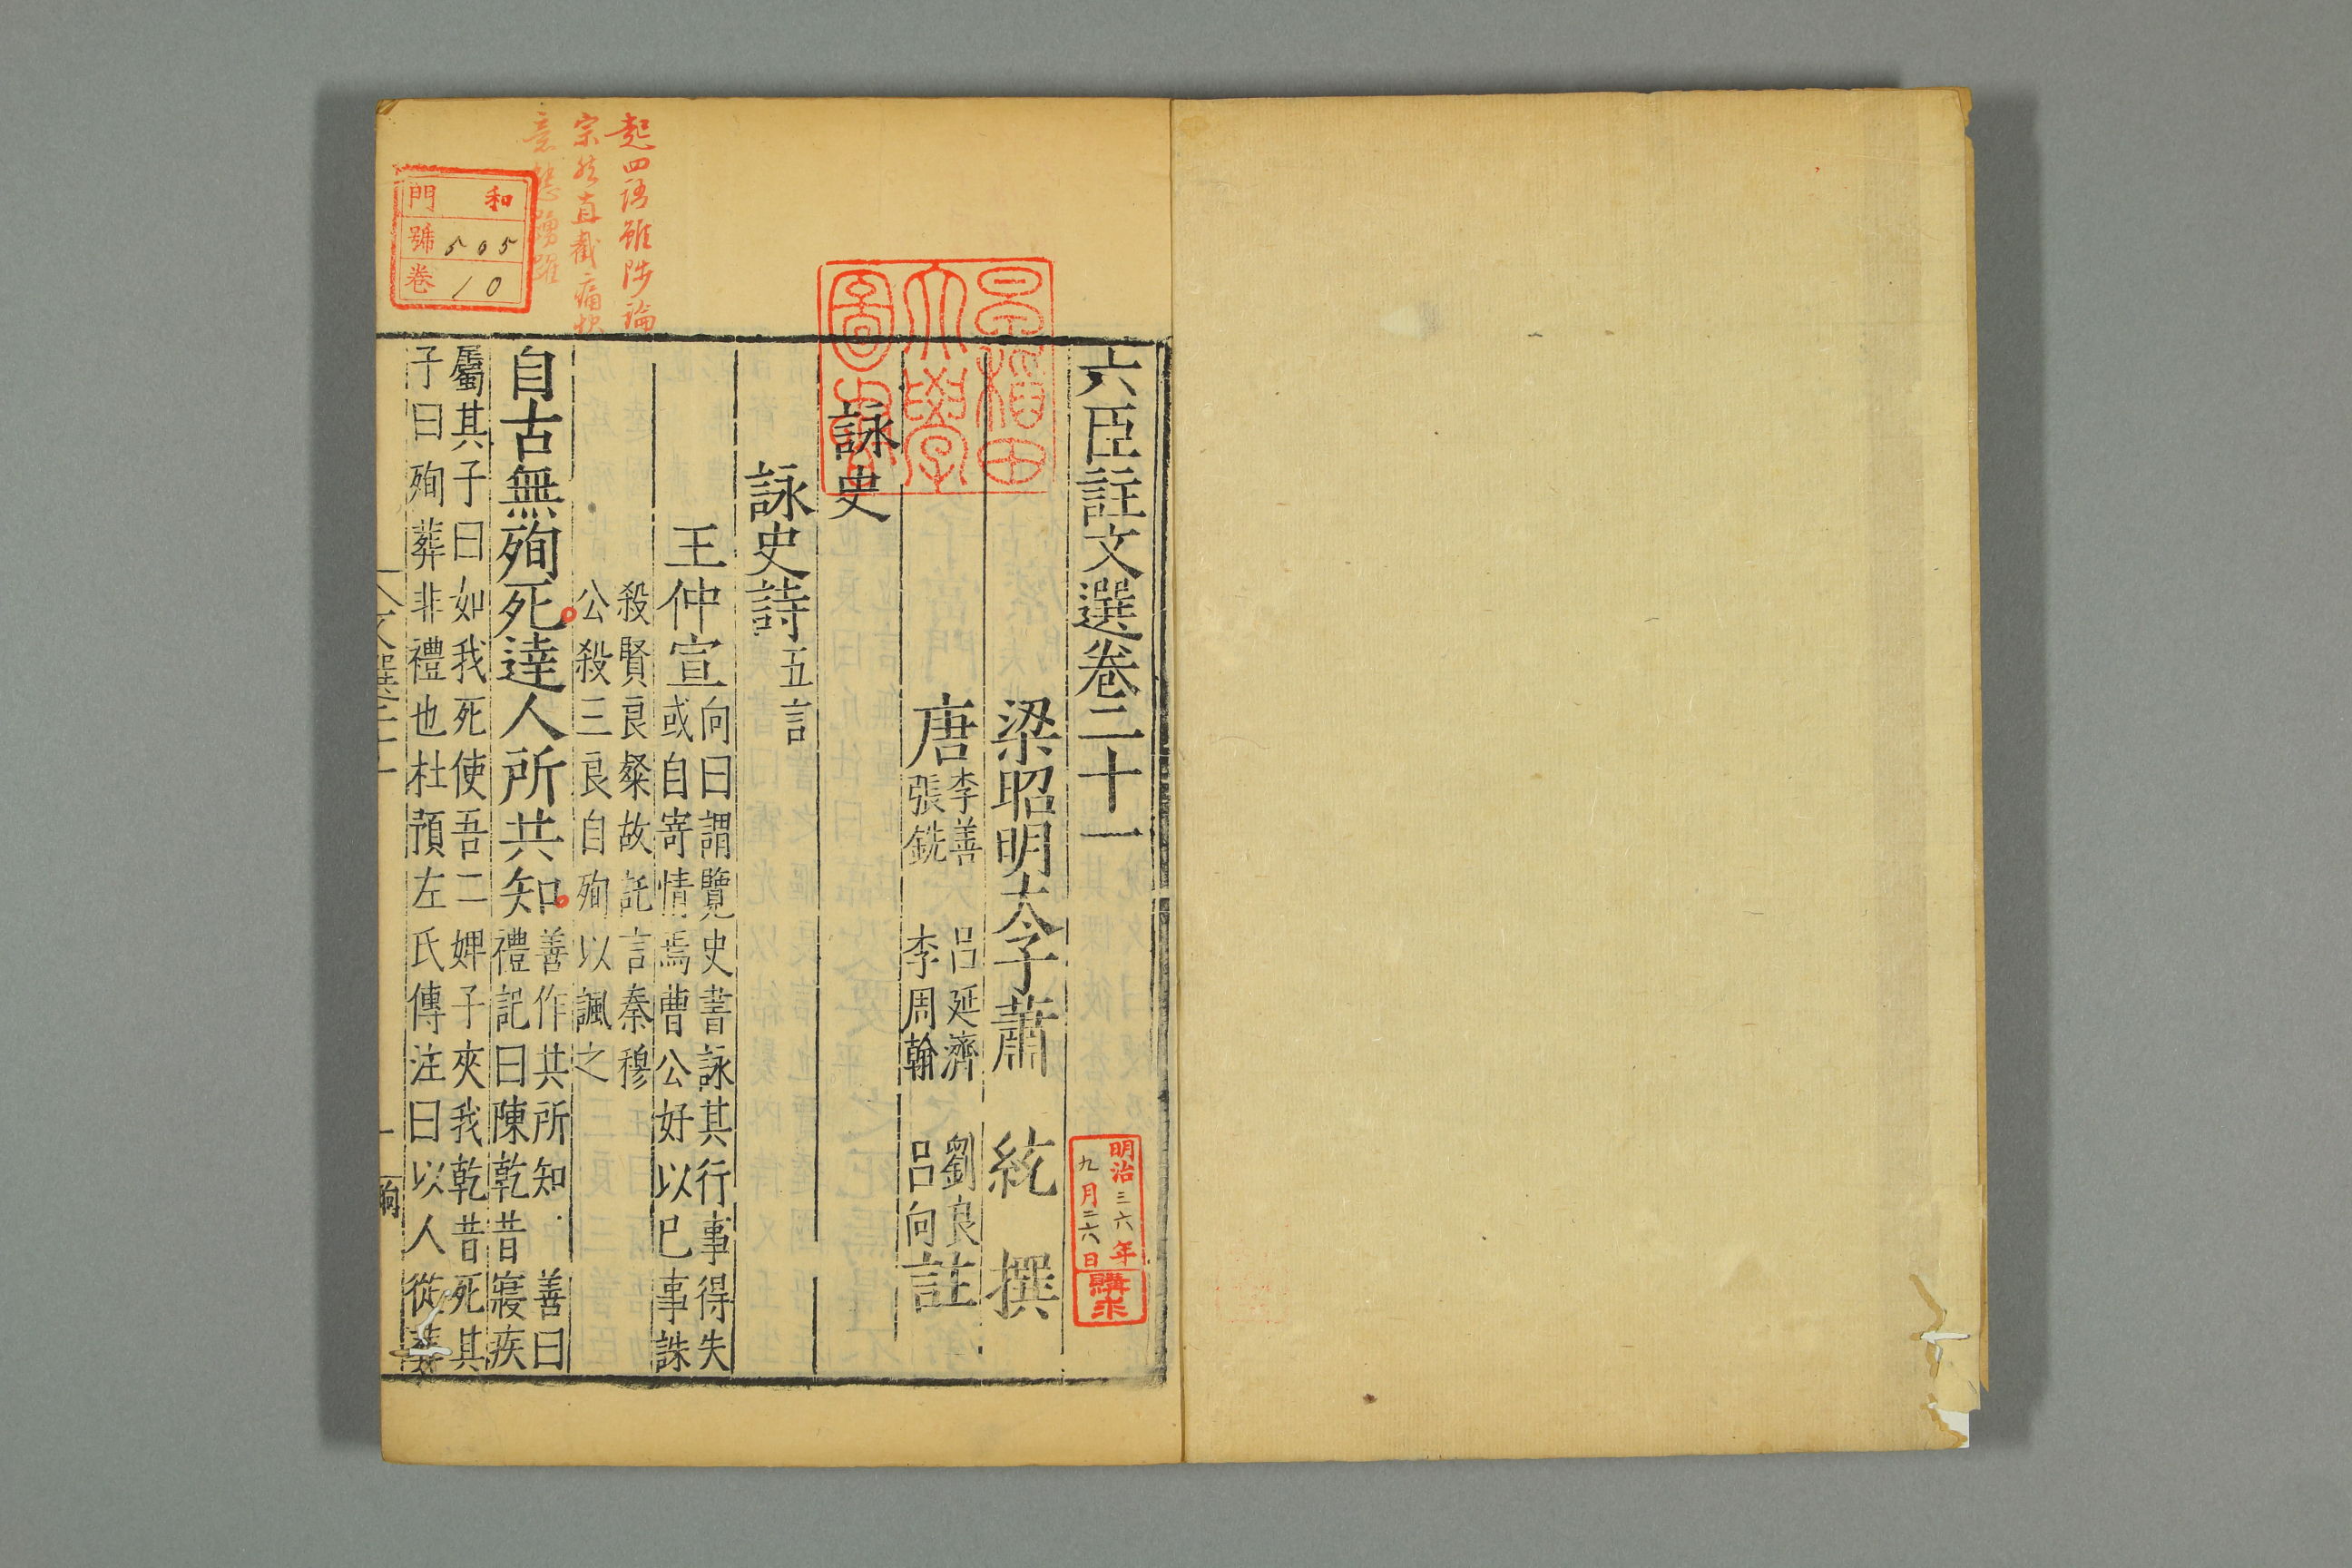 六臣註文選卷二十一
梁昭明太子蕭 統 撰
唐李善 呂延濟 劉良
張銑 李周翰 呂向註
詠史
詠史詩五言
王仲宣向曰謂覽史書詠其行事得失
或自寄情焉曹公好以巳事誅
殺賢良粲故託言秦穆
公殺三良自殉以諷之
自古無殉死達人所共知善作共所知 善曰
禮記曰陳乾昔寢疾
屬其子曰如我死使吾二婢子夾我乾昔死其
子曰殉葬非禮也杜預左氏傳注曰以人從葬
文選二十一
起四語雖涉論
宗然直截痛快
踴躍
和
門
號 505
卷 10
早稲田
大學
圖書
明治三六年
九月二六日
購求